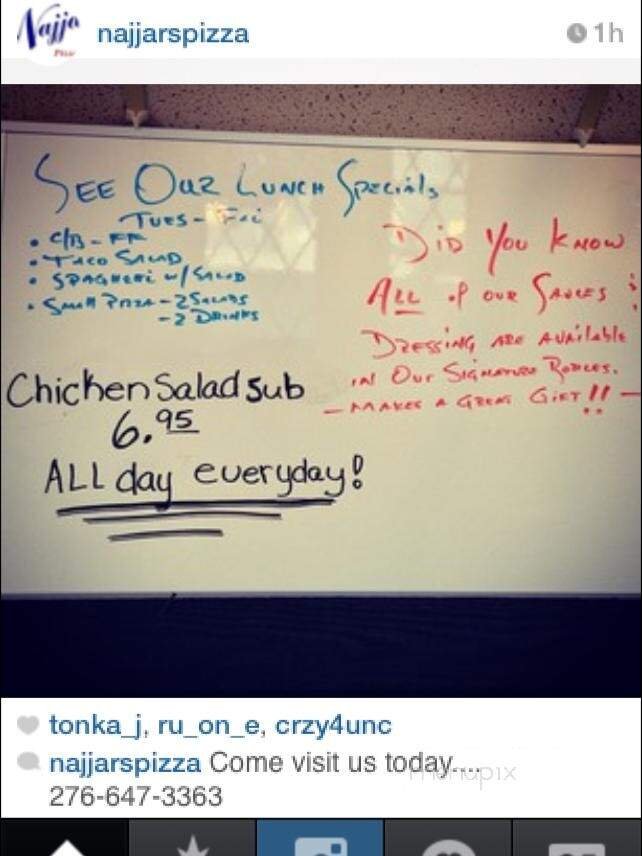 Najja
Pizza
najjarspizza
1h
SEE OUR LUNCH Specials
TUES - Fri
• C/B - FF
• TACO SALAD
• SPAGHETTI w/ SALAD
• Small Pizza - 2 SALADS
- 2 DRINKS
Chicken Salad Sub
6.95
ALL day everyday!
DID You KNOW
ALL of OUR SAUCES &
DRESSING ARE AVAilable
IN Our SIGNATURE BOTTLES.
- MAKES A GREAT GIFT!! -
tonka_j, ru_on_e, crzy4unc
najjarspizza Come visit us today....
276-647-3363
menupix